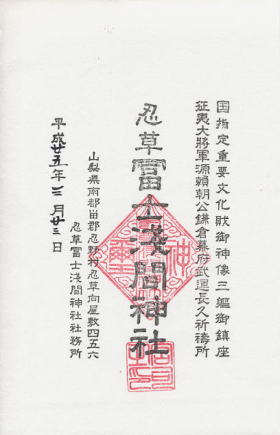 国指定重要文化財御神像三軀御鎮座
征夷大將軍源頼朝公鎌倉幕府武運長久祈禱所
忍草富士淺間神社
山梨県南都留郡忍野村忍草向屋敷四五六
忍草富士淺間神社社務所
平成廿五年三月廿三日